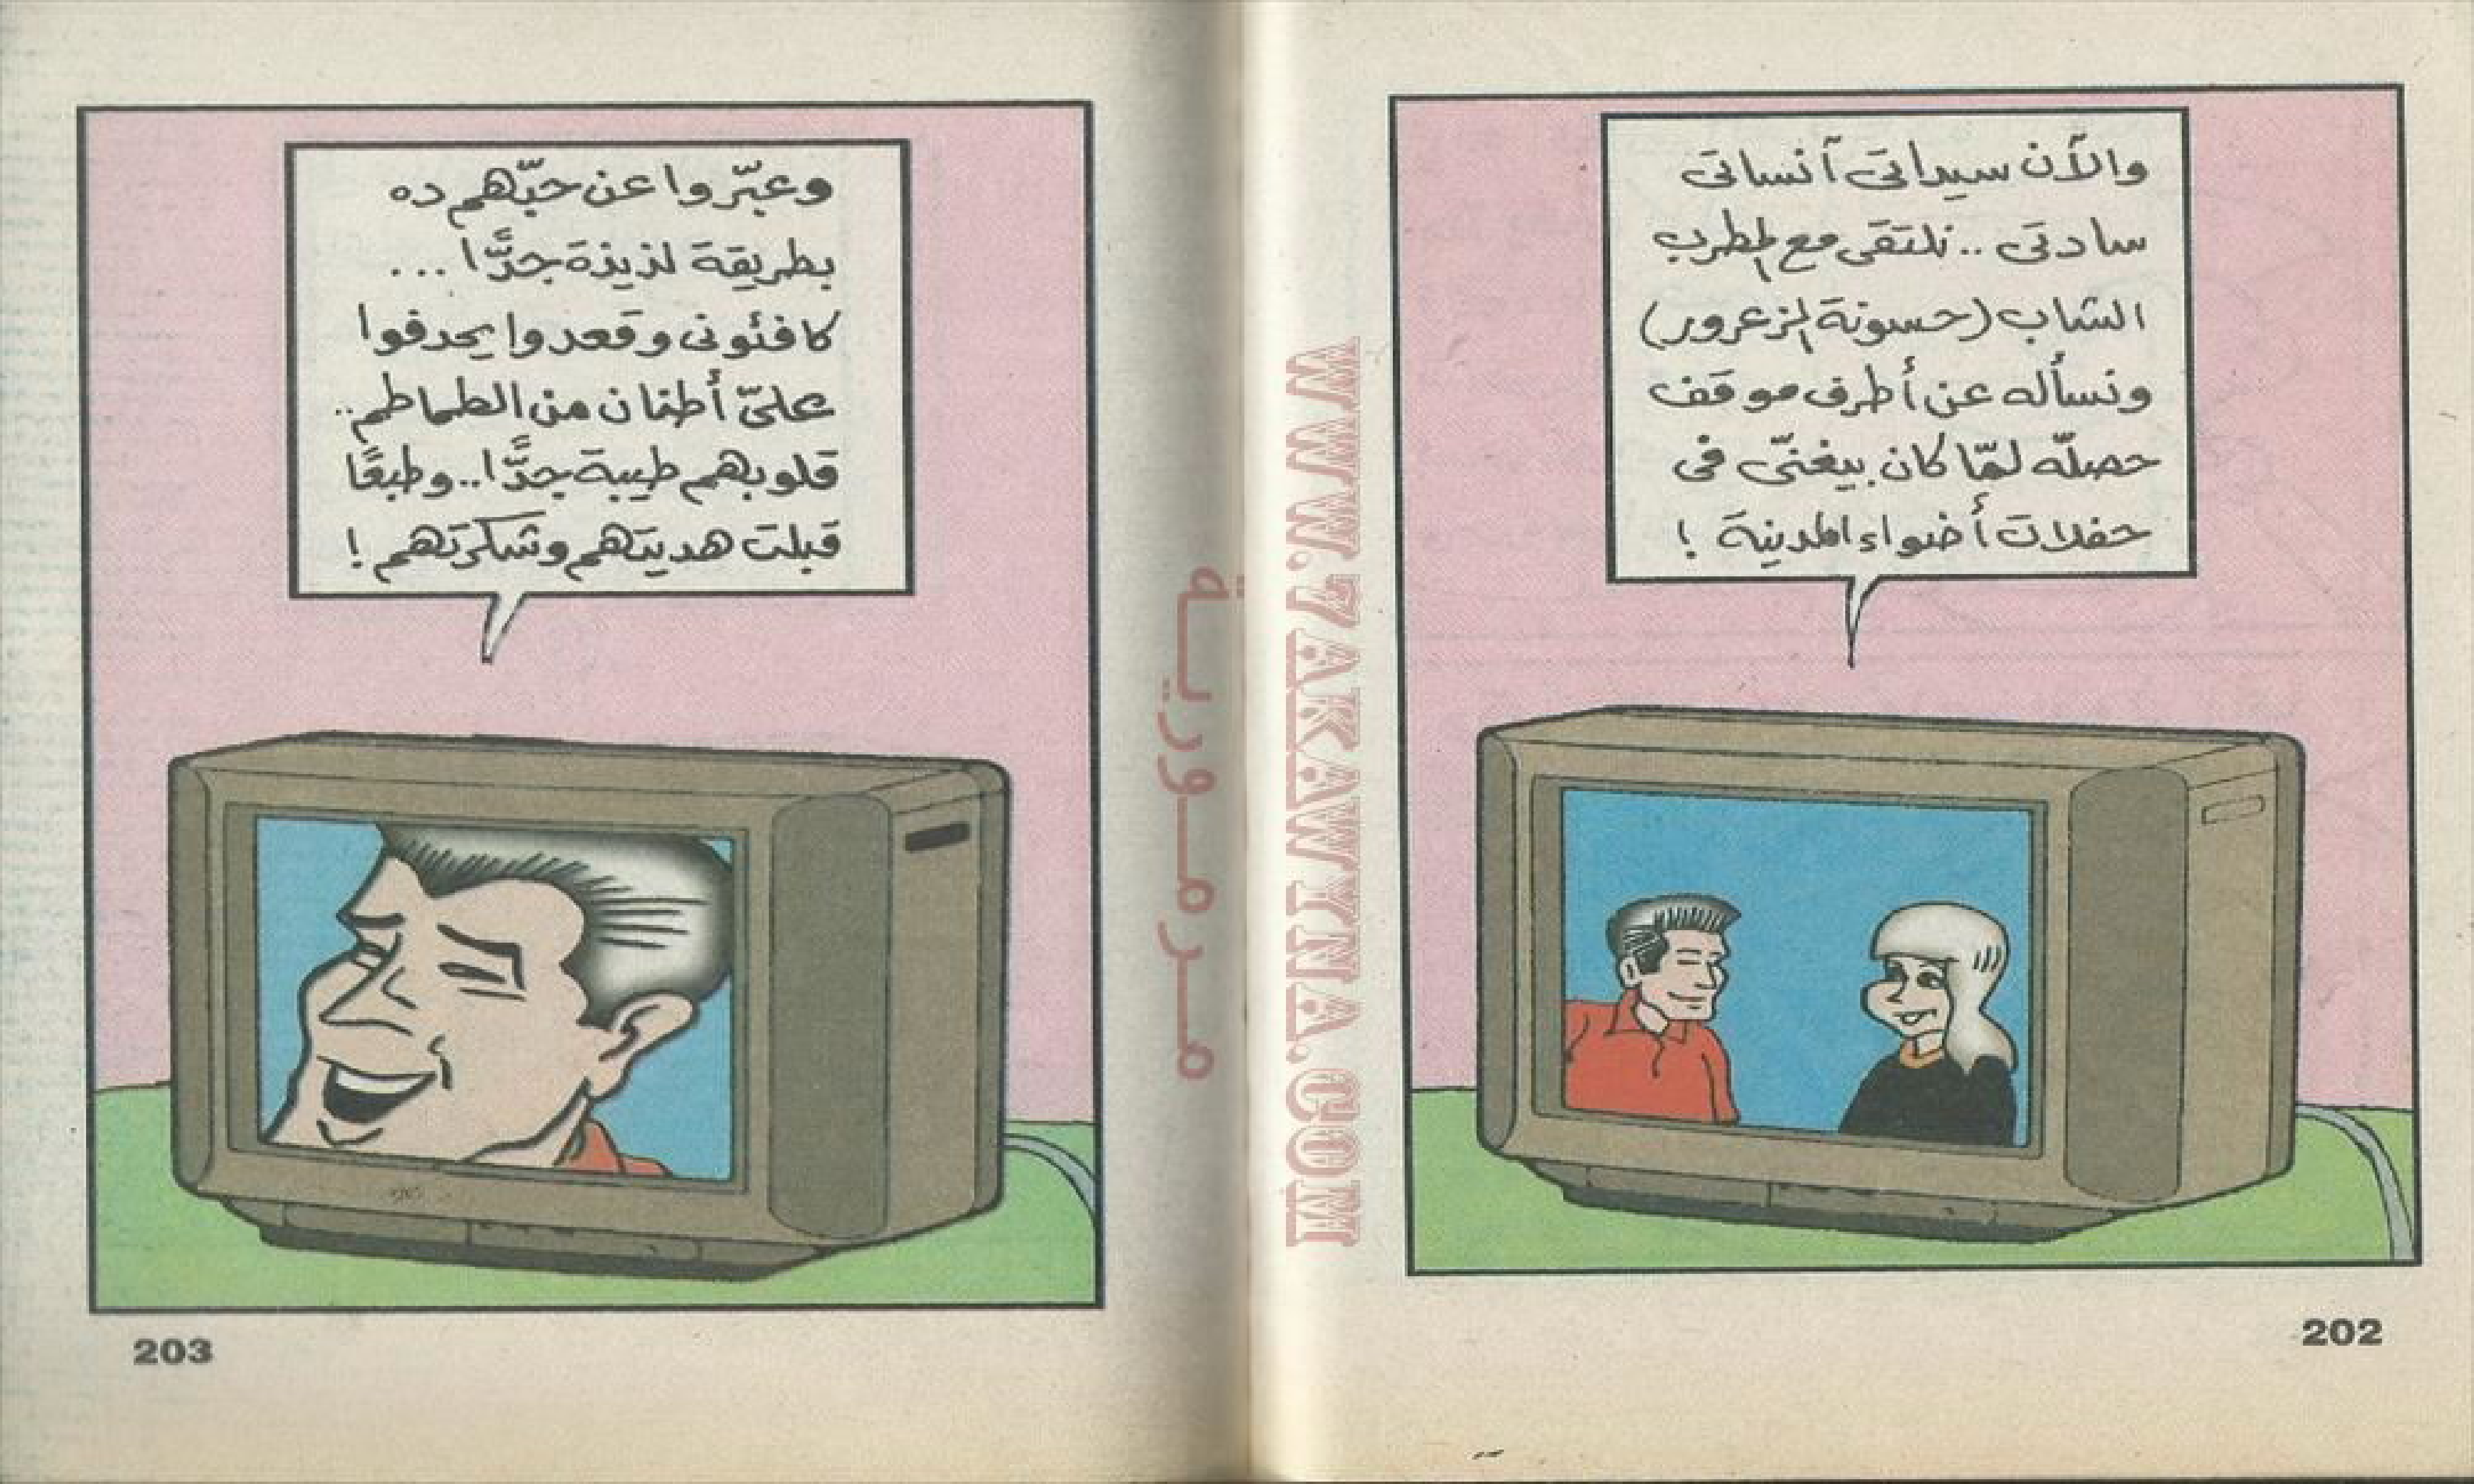 والآن سيداتى آنساتى
سادتى .. نلتقى مع المطرب
الشاب (حسونة الزعرور)
ونسأله عن أطرف موقف
حصلّه لمّا كان بيغنّى فى
حفلات أضواء المدينة !
202
وعبّروا عن حبّهم ده
بطريقة لذيذة جدًّا ...
كافئونى وقعدوا يحدفوا
علىّ أطنان من الطماطم ..
قلوبهم طيبة جدًّا .. وطبعًا
قبلت هديتهم وشكرتهم !
203
WWW.7AKAWINA.COM
مرمورية